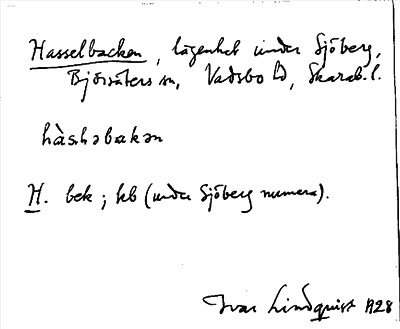 Hasselbacken, lägenhet under Sjöberg,
Björsäters sn, Vadsbo hd, Skarab. l.
hàs:həbakən
H. bek; kb (under Sjöberg numera).
Ivar Lindquist 1928